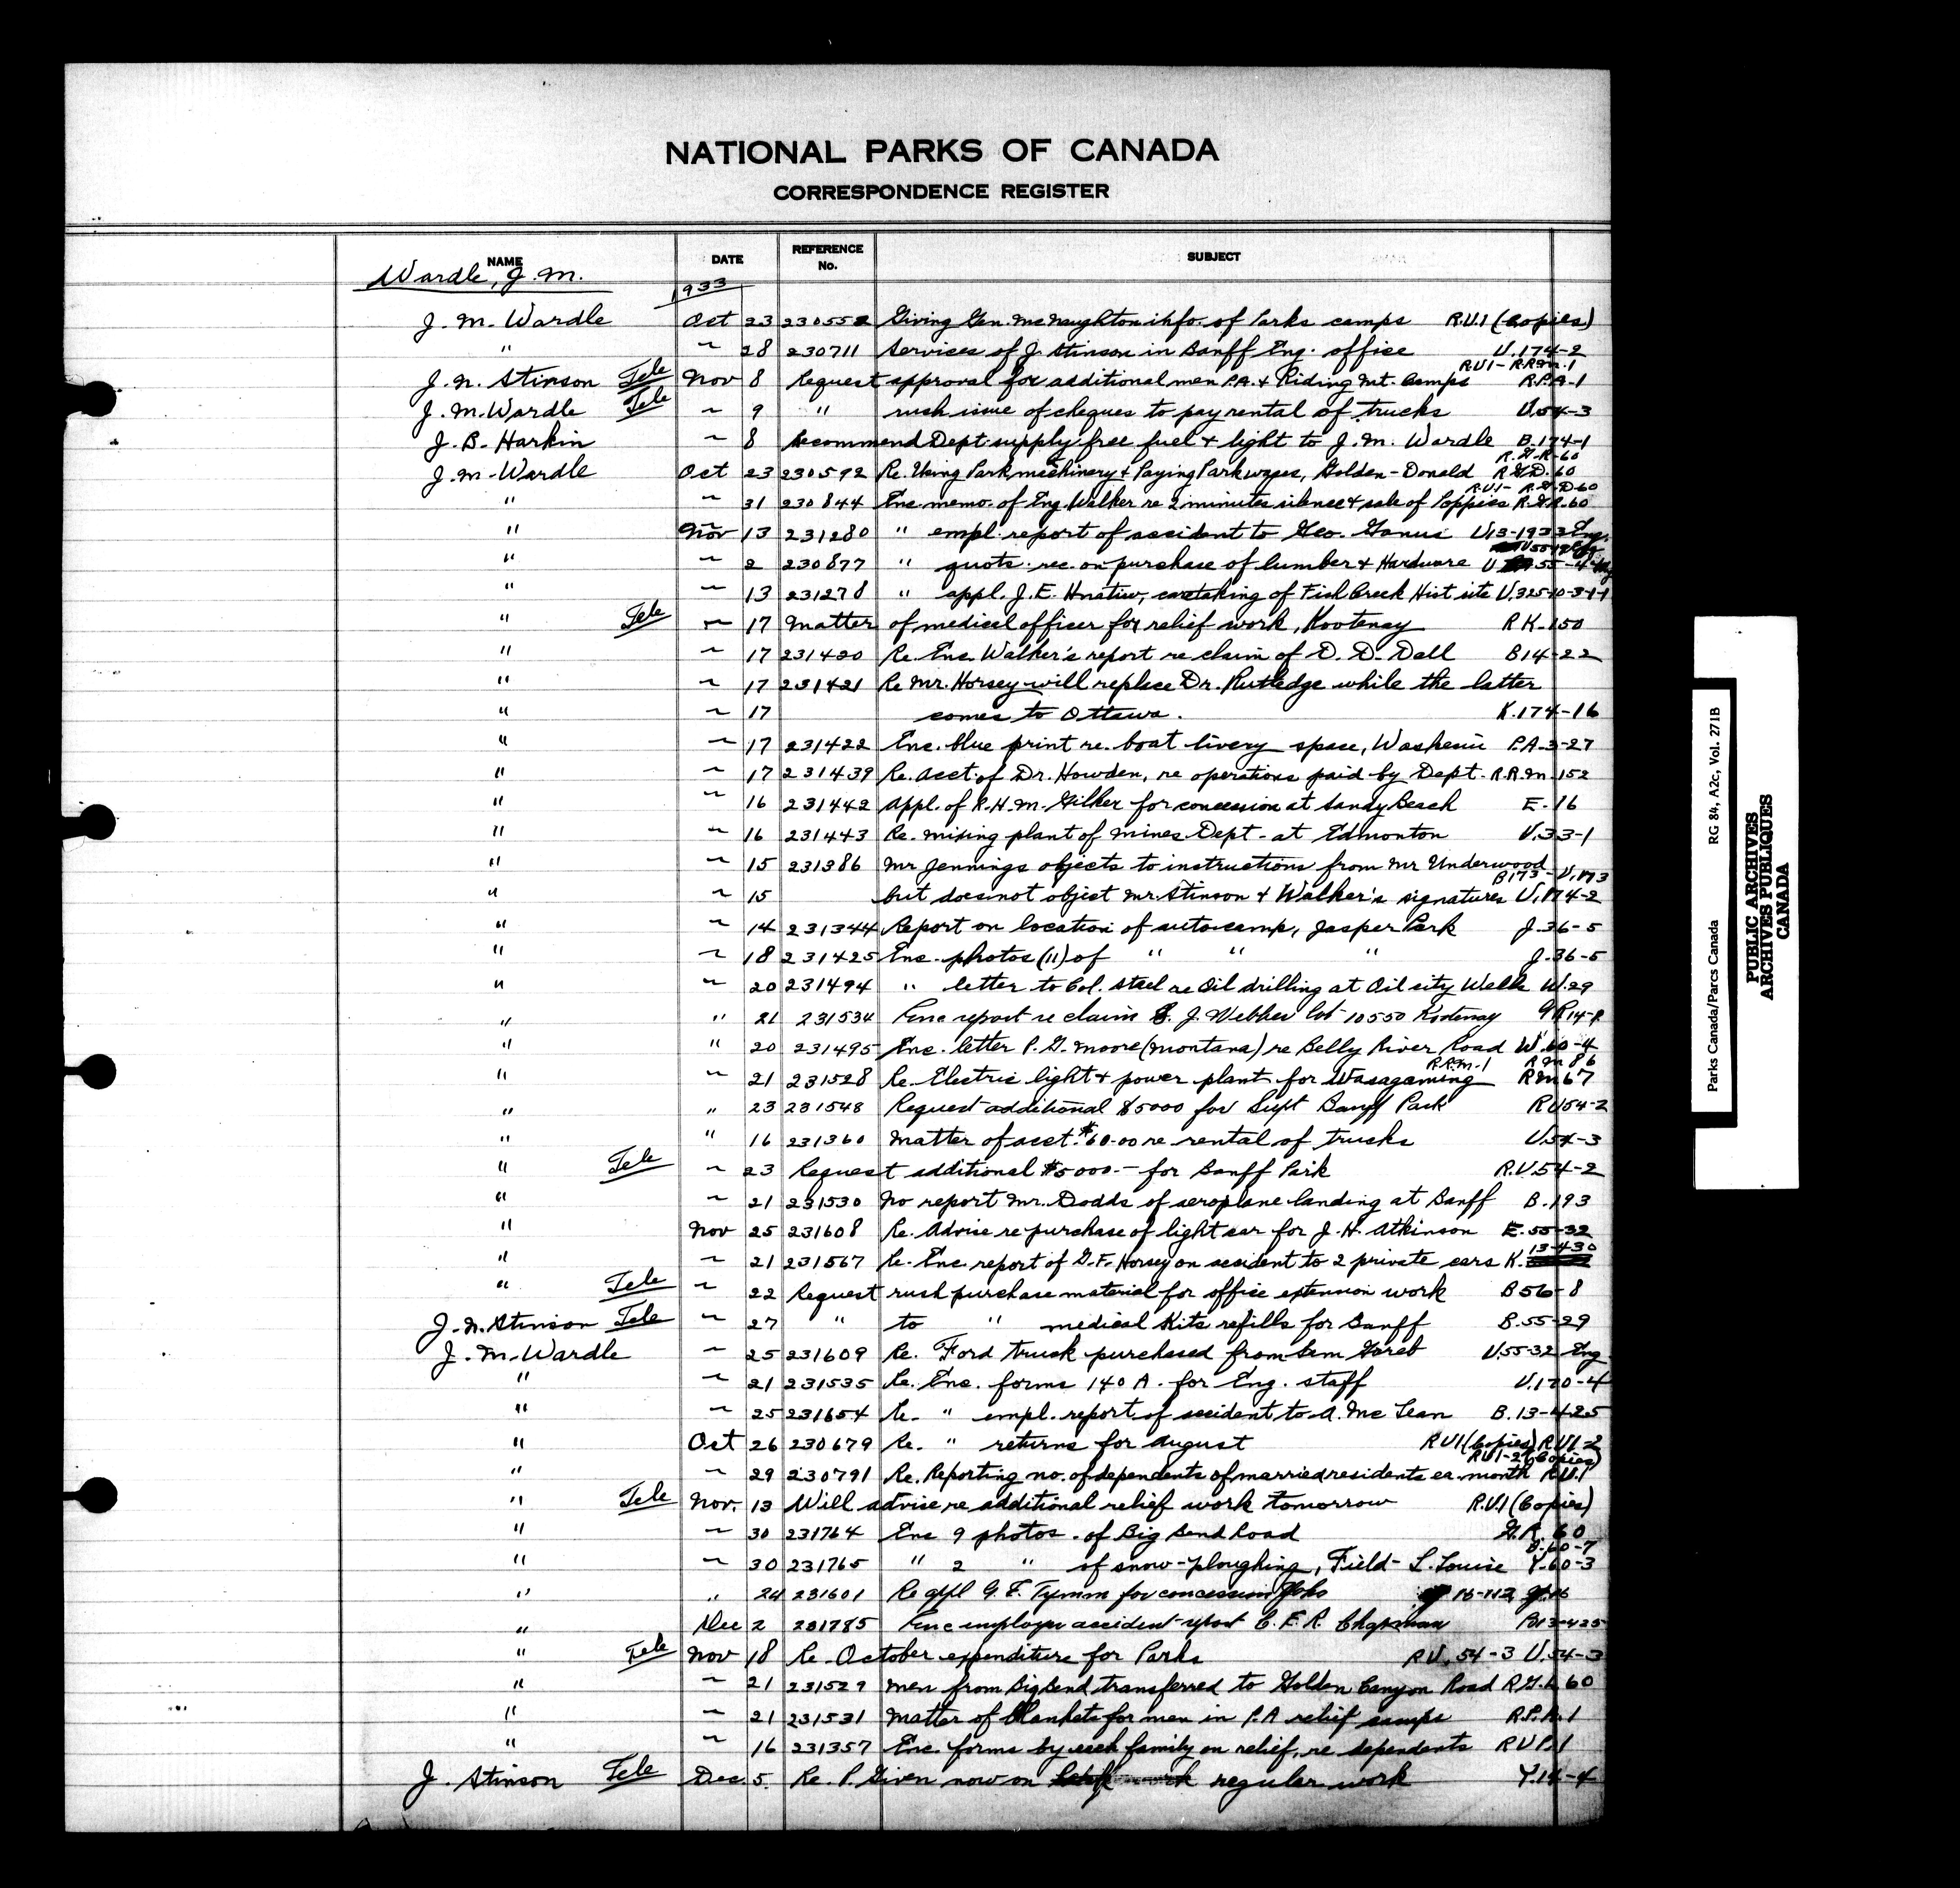 NATIONAL PARKS OF CANADA
CORRESPONDENCE REGISTER
NAME DATE REFERENCE No. SUBJECT
Wardle, J. M.
1933
J. M. Wardle Oct 23 230552 Giving Gen. McNaughton info. of Parks camps R.U.1 (Copies)
" ~ 28 230711 Services of J. Stinson in Banff Eng. office U.174-2
RU1-RRM.1
J. N. Stinson Tele Nov 8 Request approval for additional men P.A. & Riding Mt. Camps R.P.A-1
J. M. Wardle Tele ~ 9 " rush issue of cheques to pay rental of trucks U.54-3
J. B. Harkin ~ 8 Recommend Dept. supply free fuel & light to J. M. Wardle B.174-1
R.G.R-60
J. M. Wardle Oct 23 230592 Re. Using Park machinery & Paying Park wages, Golden-Donald R.G.D.60
R.U1- R.G.D60
" ~ 31 230844 Enc. memo. of Eng. Walker re 2 minutes silence & sale of Poppies R.G.R.60
" Nov 13 231280 " empl. report of accident to Geo. Hanus U13-1933 Eng.
" ~ 2 230877 " quots. rec. on purchase of lumber & Hardware U 55-4
" ~ 13 231278 " appl. J. E. caretaking of Fish Creek Hist site U.325-10-3-1-1
" Tele ~ 17 Matter of medical officer for relief work, Kootenay R K-150
" ~ 17 231420 Re. Enc. Walker's report re claim of D. D. Dall B14-22
" ~ 17 231421 Re Mr. Horsey will replace Dr. Rutledge while the latter
" ~ 17 comes to Ottawa. K.174-16
" ~ 17 231422 Enc. blue print re. boat livery space, Waskesiu P.A-3-27
" ~ 17 231439 Re. acct. of Dr. Howden, re operations paid by Dept. R.R.M.152
" ~ 16 231442 Appl. of R. H. M. Gilker for concession at Sandy Beach E-16
" ~ 16 231443 Re. mixing plant of Mines Dept. at Edmonton U.33-1
" ~ 15 231386 Mr Jennings objects to instructions from Mr Underwood
B173-U.173
" ~ 15 but does not object Mr. Stinson & Walker's signatures U.174-2
" ~ 14 231344 Report on location of autocamp, Jasper Park J.36-5
" ~ 18 231425 Enc. photos (11) of " " " J.36-5
" ~ 20 231494 " letter to Col. Steel re Oil drilling at Oil city Wells W.29
" " 21 231534 Enc report re claim J. Webber lot 10550 Kootenay
" " 20 231495 Enc. letter P. G. Moore (Montana) re Belly River Road W.60-4
R.R.M-1 R M 86
" ~ 21 231528 Re. Electric light & power plant for Wasagaming RM67
" " 23 231548 Request additional $5000 for Supt Banff Park RU54-2
" " 16 231360 Matter of acct. $60.00 re rental of trucks U54-3
" Tele ~ 23 Request additional $5000.- for Banff Park R.U.54-2
" ~ 21 231530 No report Mr. Dodds of aeroplane landing at Banff B.193
" Nov 25 231608 Re. Advise re purchase of light car for J. H. Atkinson E.55-32
13-430
" ~ 21 231567 Re. Enc. report of G. F. Horsey on accident to 2 private cars K.
" Tele ~ 22 Request rush purchase material for office extension work B56-8
J. N. Stinson Tele ~ 27 " to " medical Kits refills for Banff B.55-29
J. M. Wardle ~ 25 231609 Re. Ford truck purchased from U.55-32 Eng.
" ~ 21 231535 Re. Enc. forms 140 A. for Eng. staff U.170-4
" ~ 25 231654 Re. " empl. report of accident to A. McLean B.13-425
" Oct 26 230679 Re. " returns for August RU1(Copies) RU1-2
RU1-2(Copies)
" ~ 29 230791 Re. Reporting no. of dependents of married residents ea. month R.U.1
" Tele Nov. 13 Will advise re additional relief work tomorrow R.U.1 (Copies)
" ~ 30 231764 Enc 9 photos. of Big Bend Road G.R. 60
B.60-7
" ~ 30 231765 " 2 " of snow-ploughing, Field - L. Louise Y.60-3
" " 24 231601 Re appl G. E. Tymm for concession 16-112
" Dec 2 231785 Enc employer accident report C. E. R. Chapman B13-425
" Tele Nov 18 Re. October expenditure for Parks RU. 54-3 U.54-3
" ~ 21 231529 Men from Big Bend transferred to Golden Canyon Road R.G.L 60
" ~ 21 231531 Matter of blankets for men in P.A relief camps R.P.A.1
" ~ 16 231357 Enc. forms by each family on relief, re dependents R U P.1
J. Stinson Tele Dec. 5. Re. P. Given now on regular work Y.14-4
Parks Canada/Parcs Canada RG 84, A2c, Vol. 271B
PUBLIC ARCHIVES
ARCHIVES PUBLIQUES
CANADA